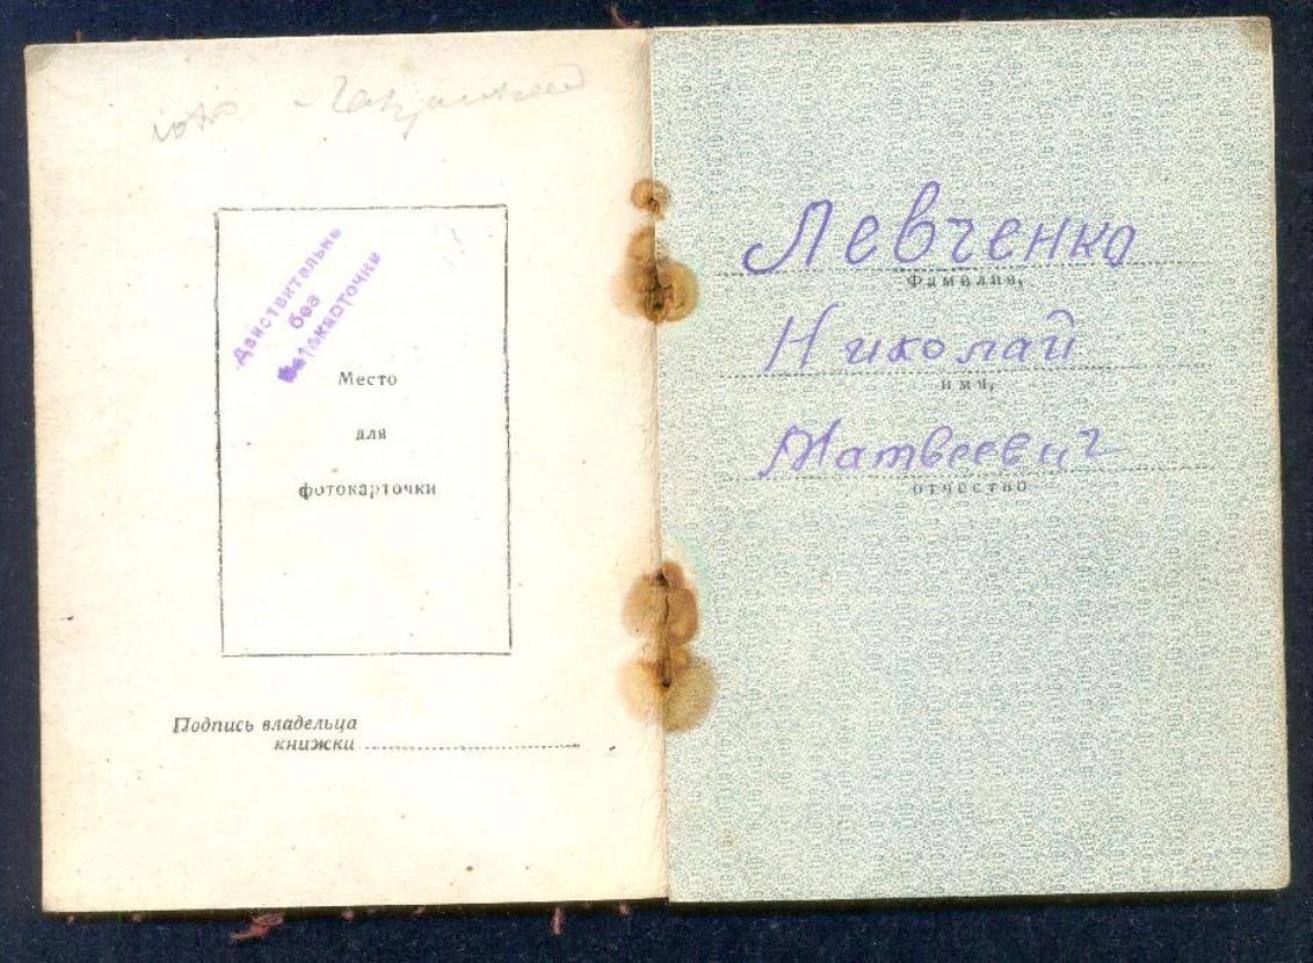 Действительно
без
фотокарточки
Место
для
фотокарточки
Подпись владельца
книжки
Левченко
Фамилия,
Николай
имя,
Матвеевич
отчество